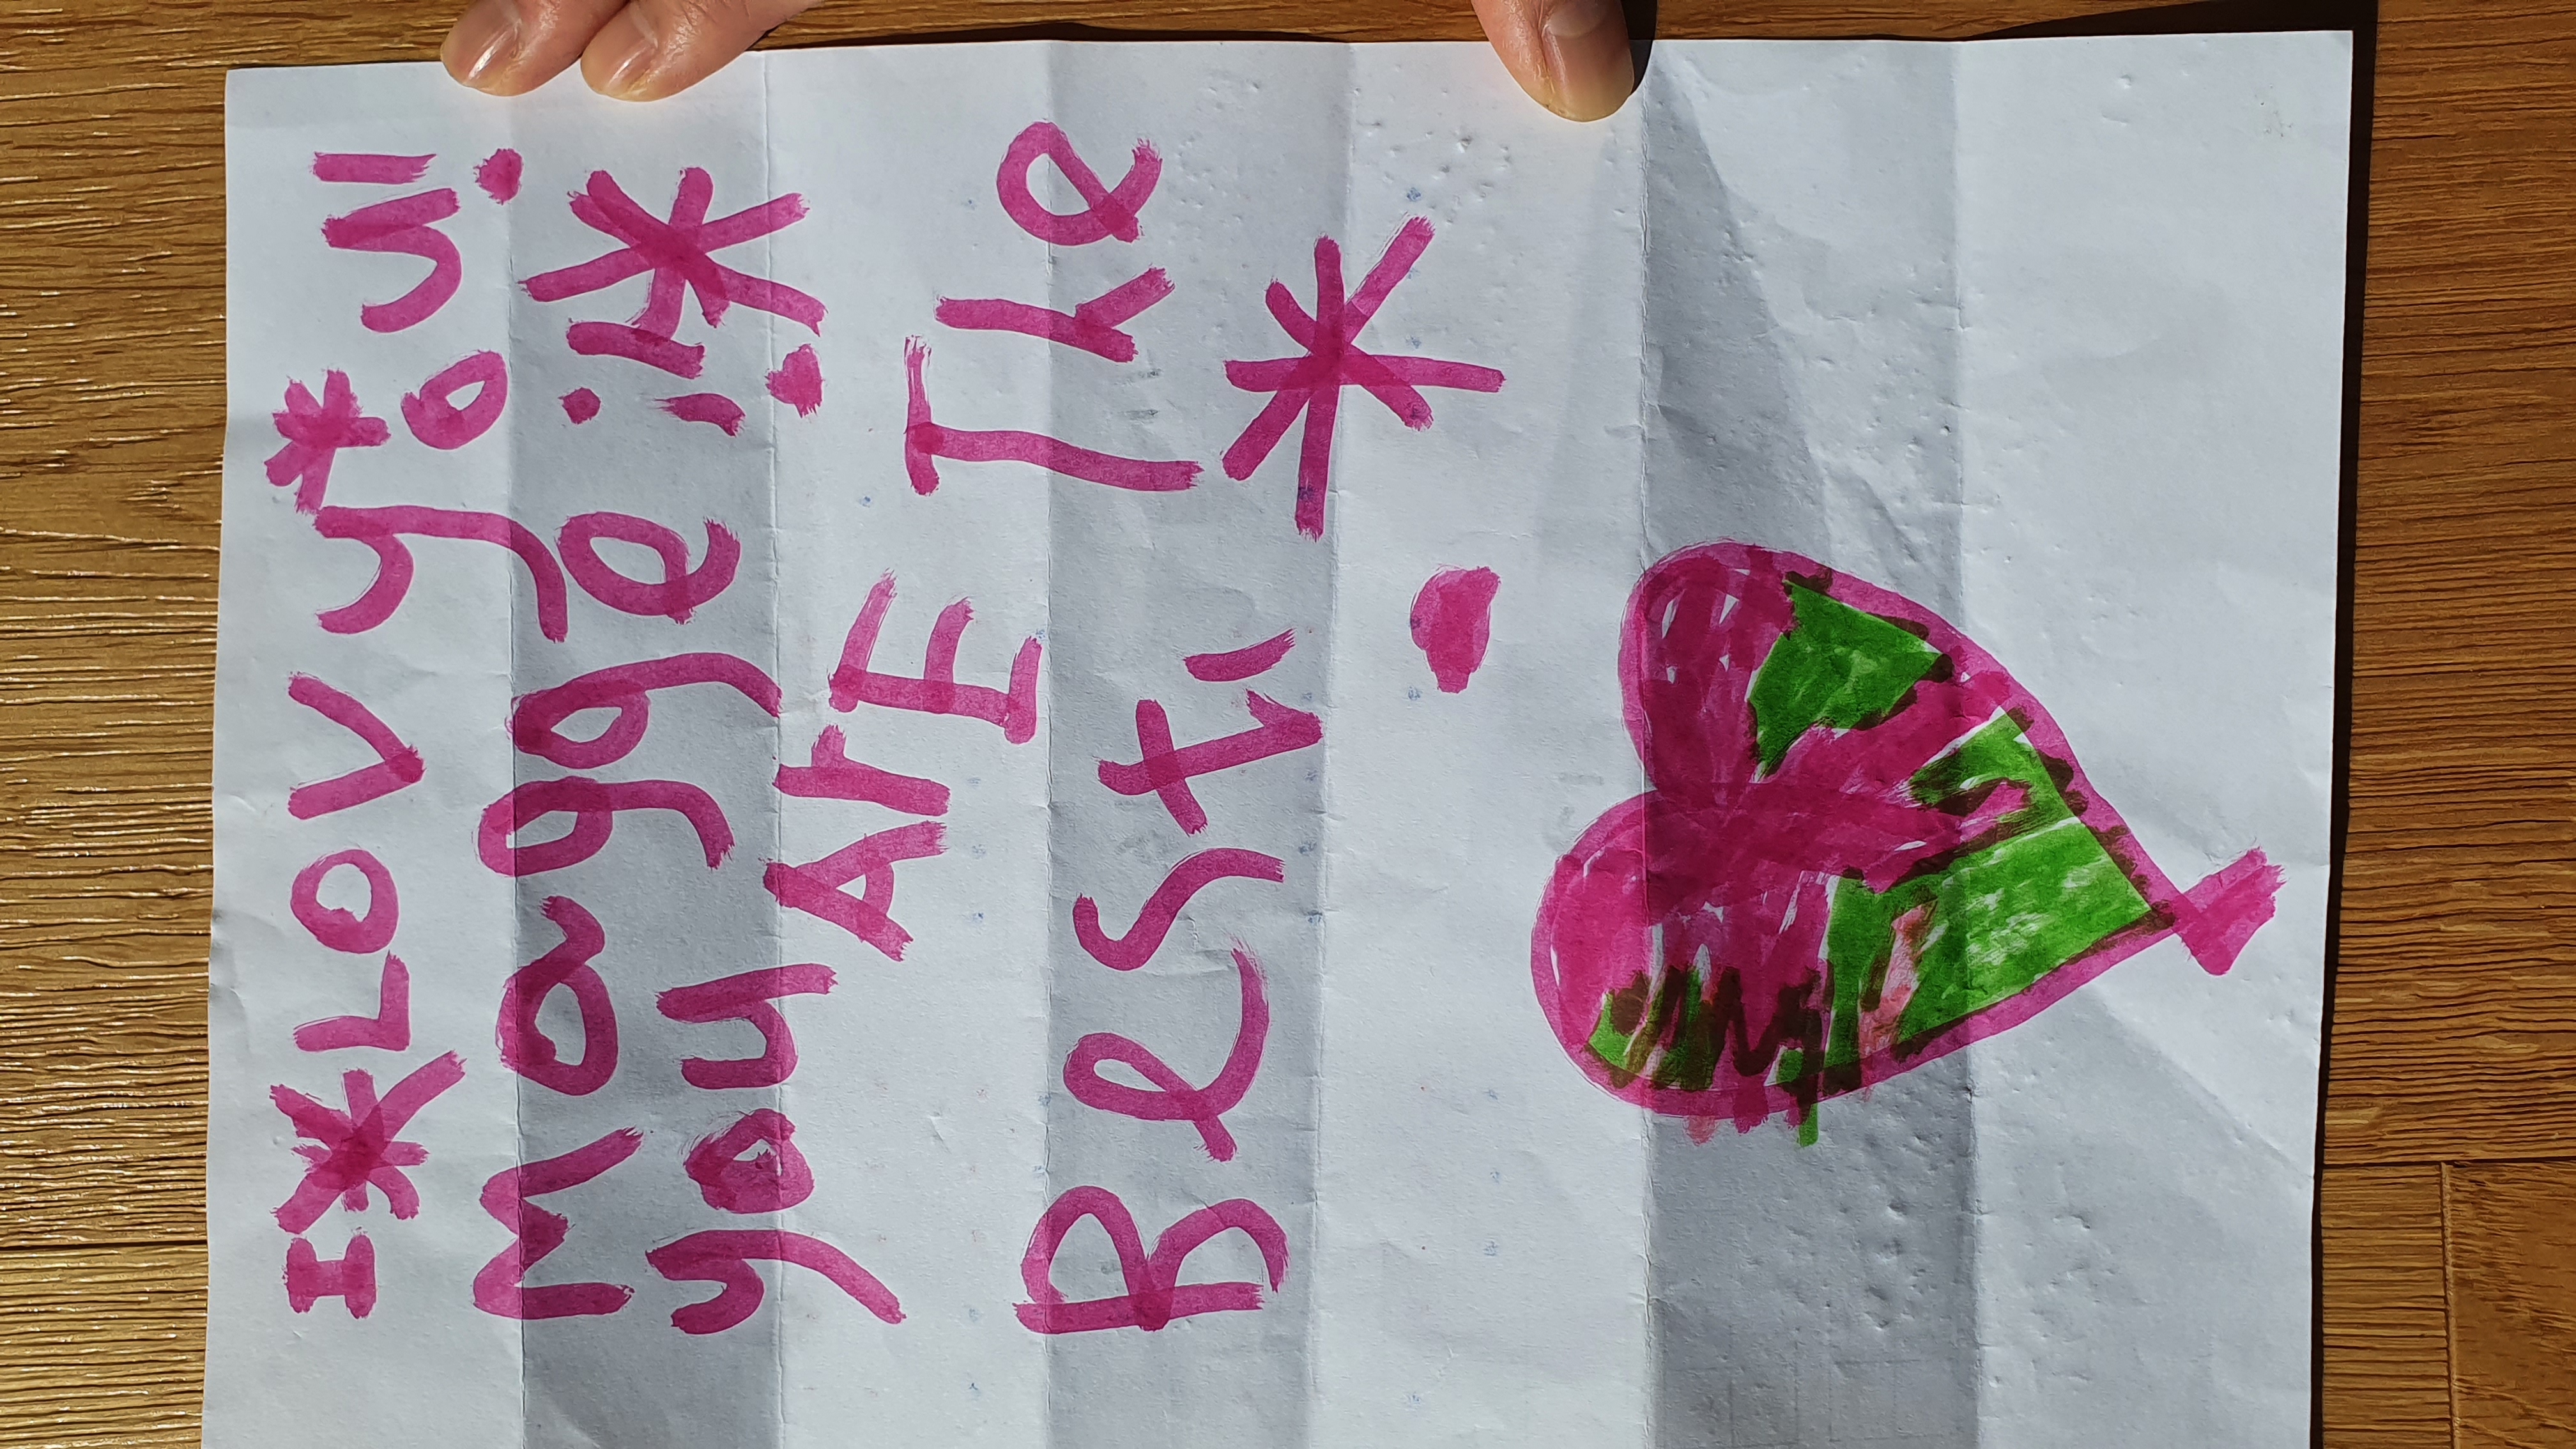 I * LOV y*ou!
Magge i! *
you ArE The
Best! *